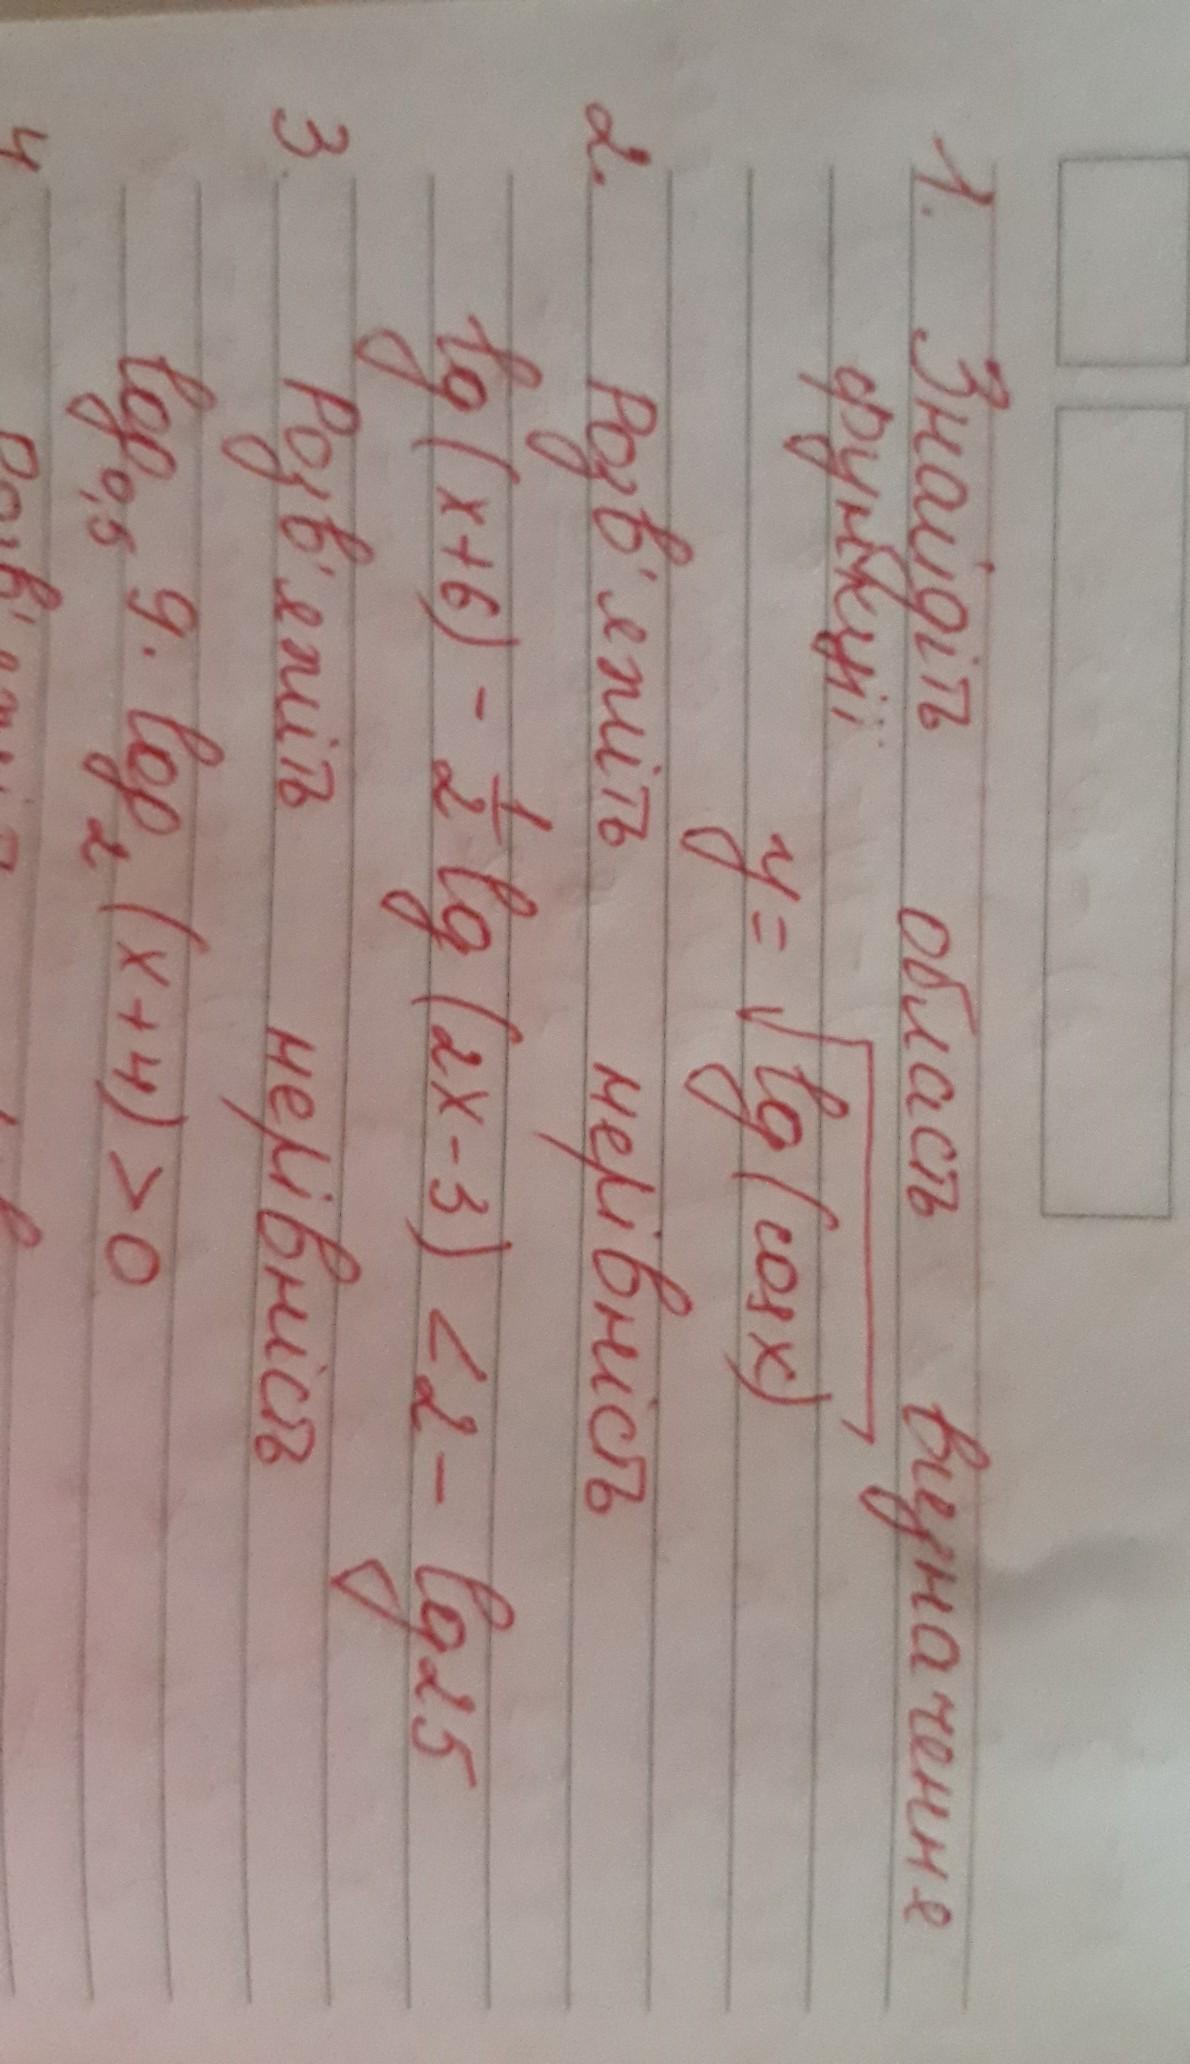 1. Знайдіть область визначення
функції
y = √lg(cosx)
2. Розв'яжіть нерівність
lg(x+6) - 1/2 lg(2x-3) < 2 - lg25
3. Розв'яжіть нерівність
log₀,₅ 9 · log₂ (x+4) > 0
4